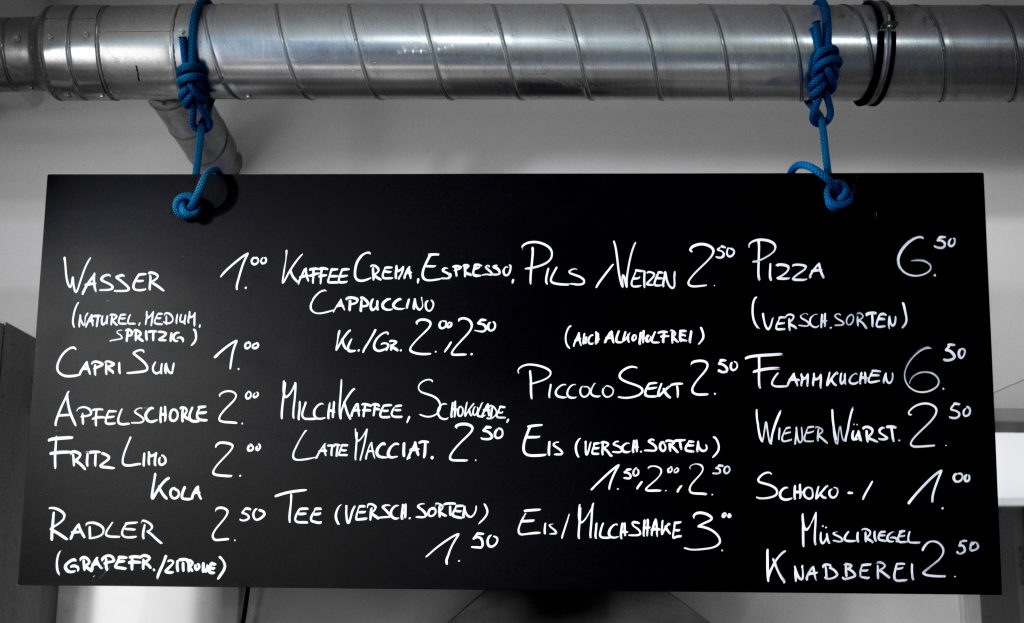 WASSER 1.00
(NATUREL, MEDIUM,
SPRITZIG)
CAPRI SUN 1.00
APFELSCHORLE 2.00
FRITZ LIMO 2.00
KOLA
RADLER 2.50
(GRAPEFR./ZITRONE)
KAFFEE CREMA, ESPRESSO,
CAPPUCCINO
KL./GR. 2.00, 2.50
MILCHKAFFEE, SCHOKOLADE,
LATTE MACCIAT. 2.50
TEE (VERSCH. SORTEN)
1.50
PILS / WEIZEN 2.50
(AUCH ALKOHOLFREI)
PICCOLO SEKT 2.50
EIS (VERSCH. SORTEN)
1.50, 2.00, 2.50
EIS/MILCHSHAKE 3.00
PIZZA 6.50
(VERSCH. SORTEN)
FLAMMKUCHEN 6.50
WIENER WÜRST. 2.50
SCHOKO-/ 1.00
MÜSLIRIEGEL
KNABBEREI 2.50